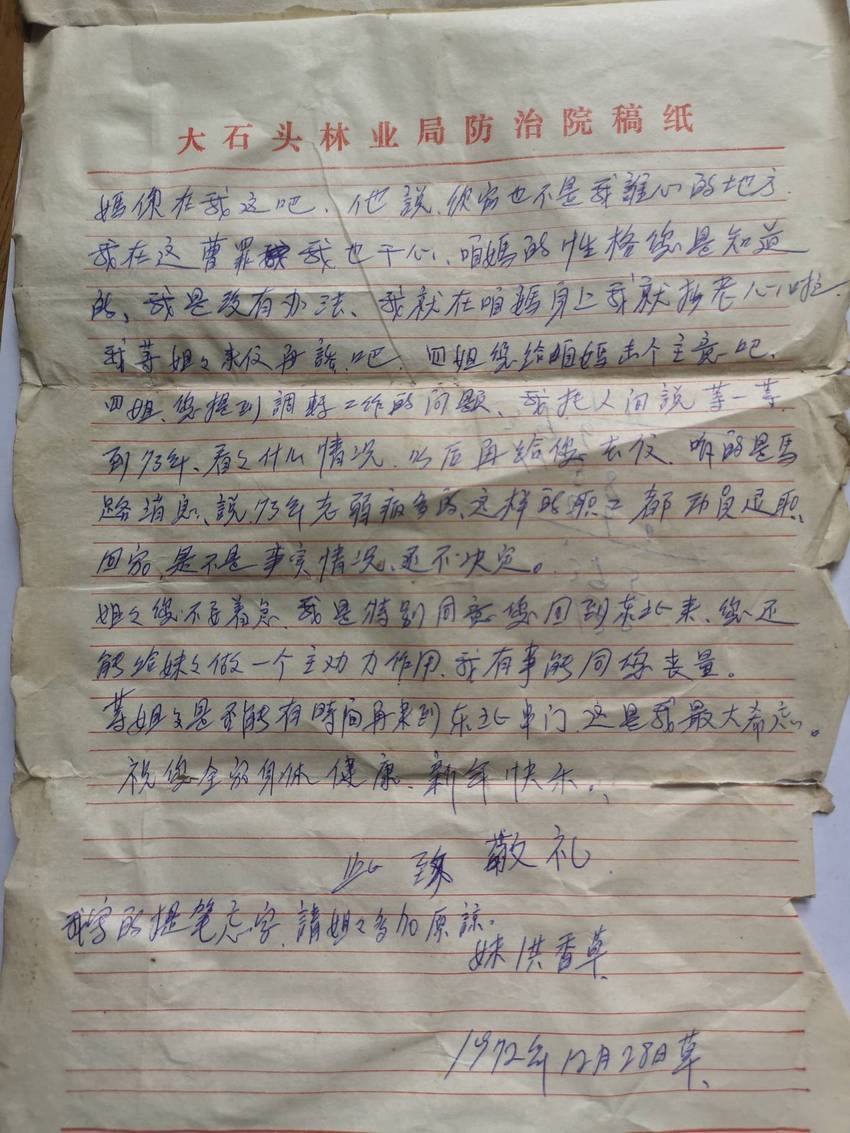 大石头林业局防治院稿纸
媽你在我这吧、他說、你家也不是我誰心的地方.
我在这曹罪 我也干心、咱媽的性格您是知道
的、我是没有办法、我就在咱媽身上我就抄老心啦.
我等姐々来信再說吧. 四姐您给咱媽出个主意吧.
四姐、您提到調轉工作的问题、我托人问說等一等.
到73年、看々什么情况、以后再给您去信. 听的是馬
路消息、說73年老弱病多的、这样的职工都动员退职.
回家、是不是事实情况、还不决定。
姐々您不要着急、我是特别同意您回到东北来、您还
能给妹々做一个主动力作用、我有事能同您丧量。
等姐々是否能有時间再来到东北串门 这是我最大希忘。
祝您全家身体健康、新年快乐.
此致 敬礼
我写的提笔忘字. 請姐々多加原諒.
妹 洪香草
1972年12月28日草.